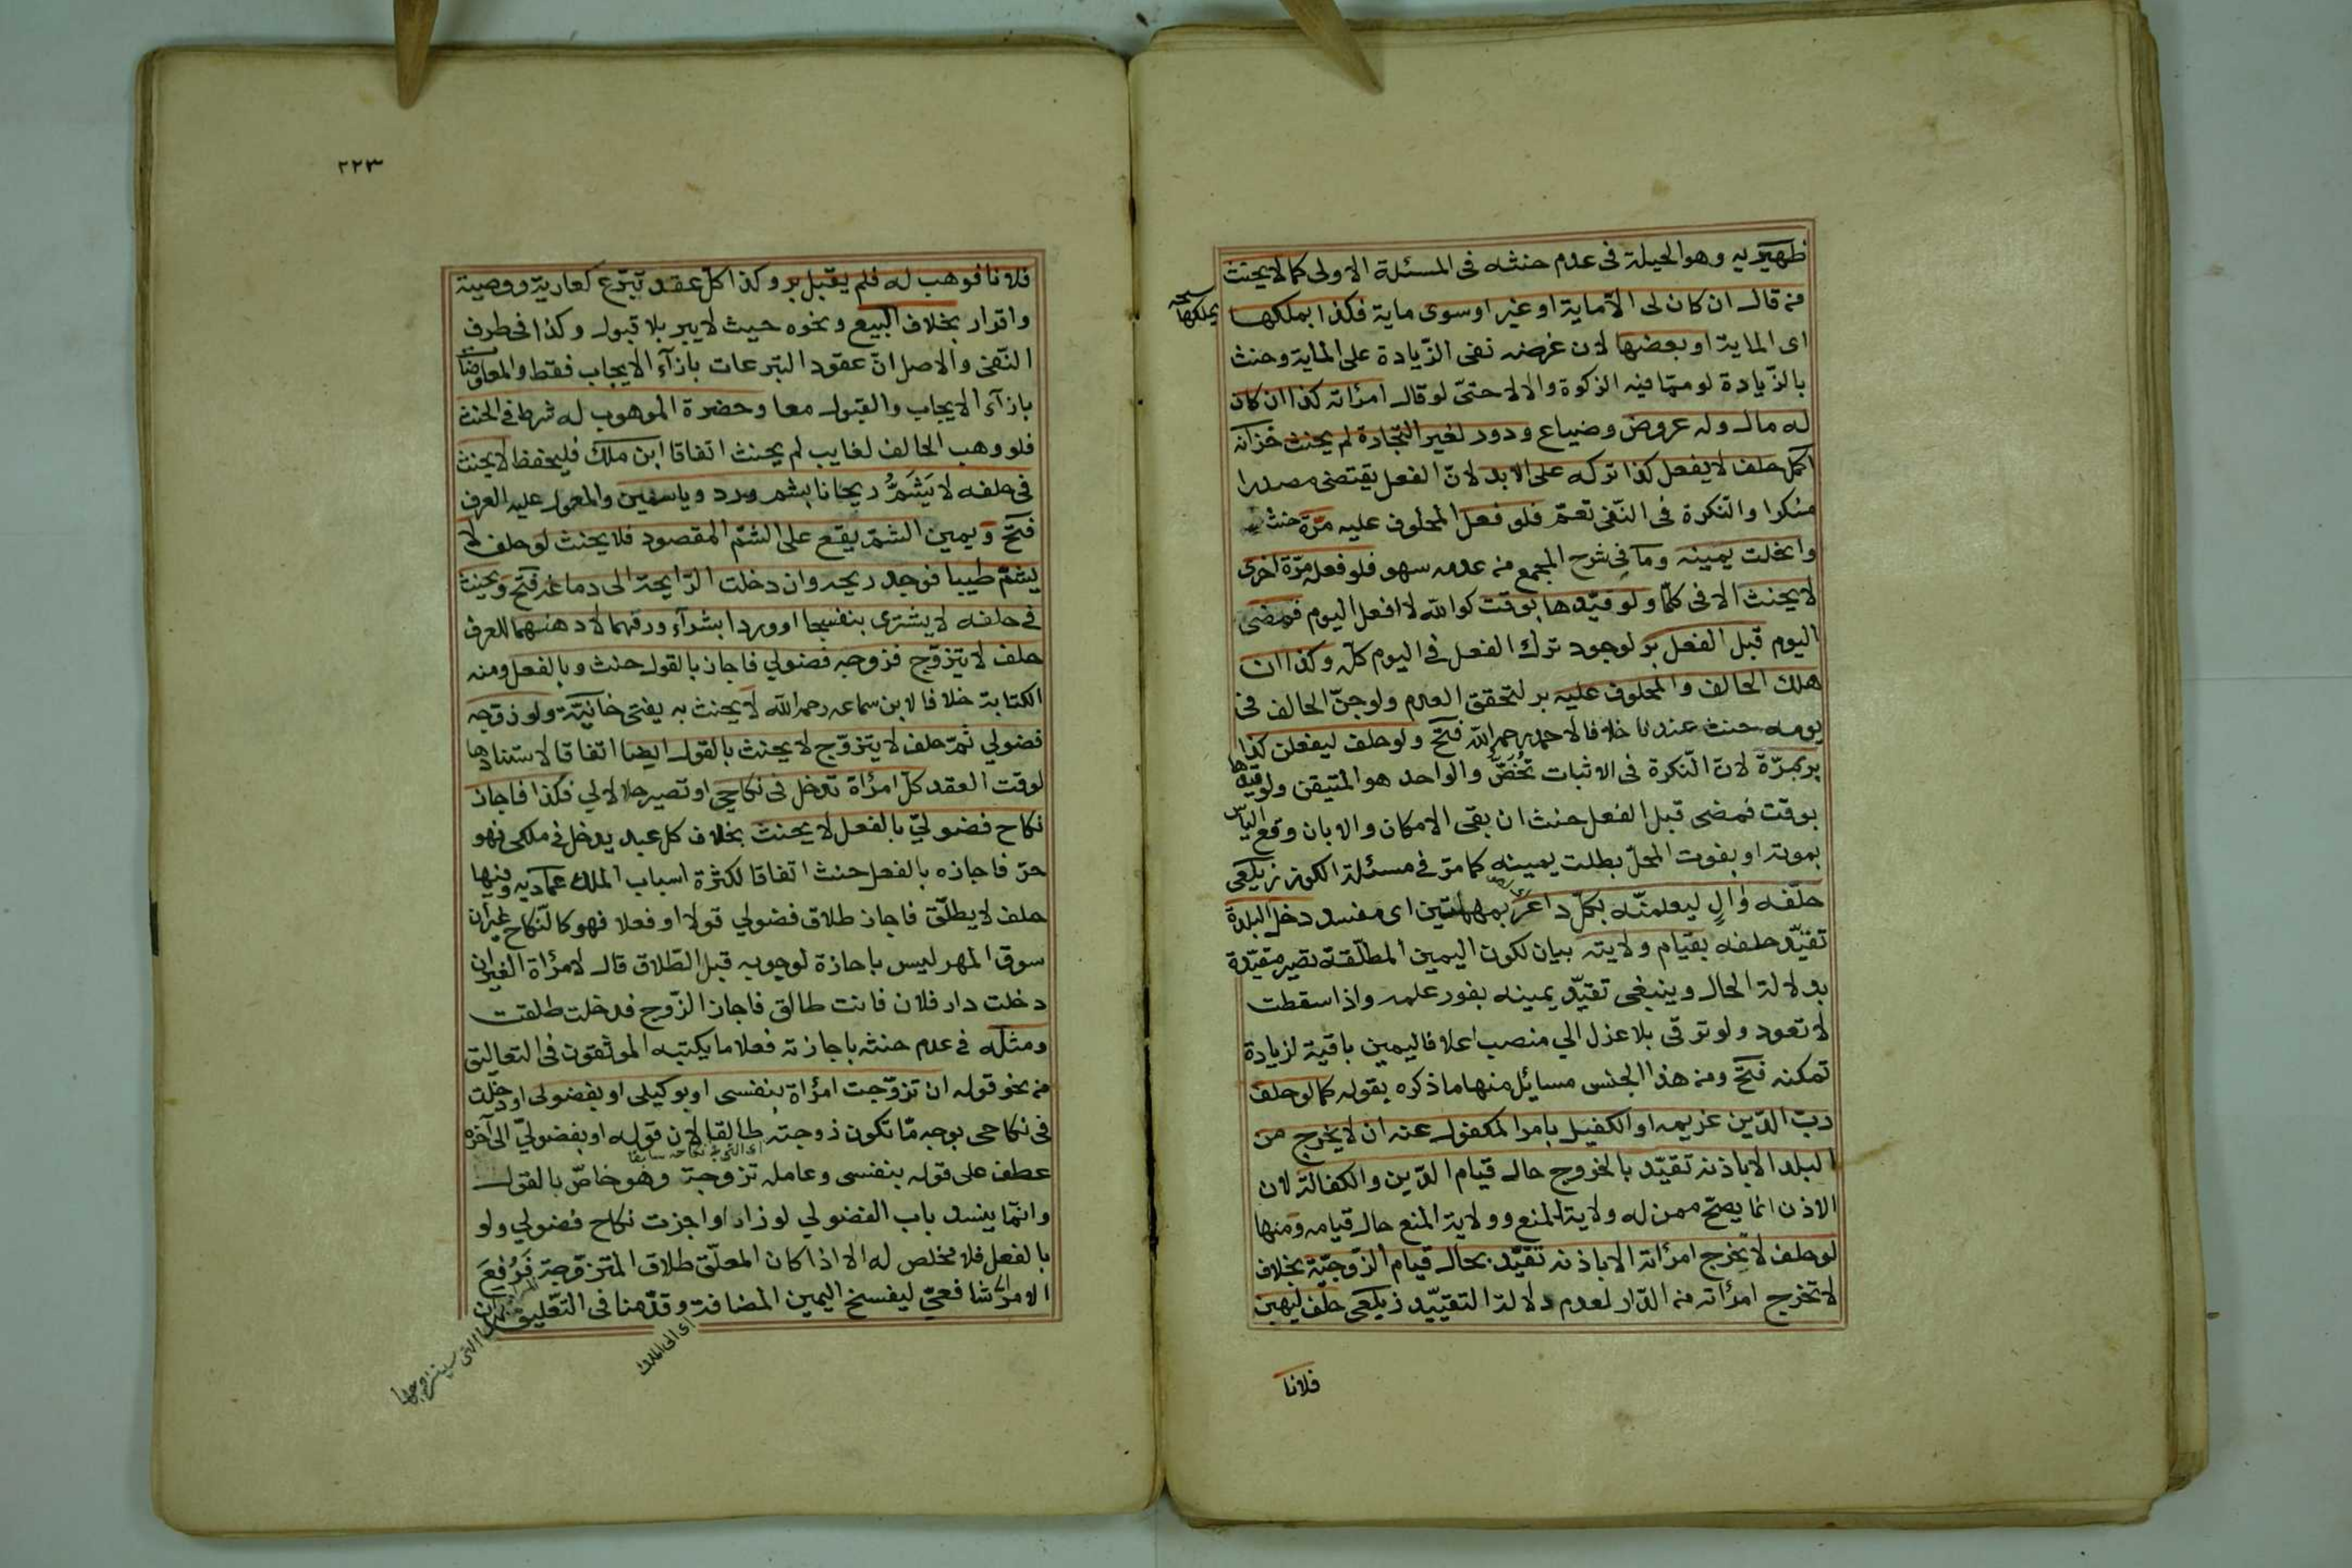 ظهيريه وهو الحيلة فى عدم حنثه فى المسئلة الاولى كما لا يحنث
من قال ان كان لى الا ماية او غير او سوى ماية فكذا بملكها
يملكها
اى الماية او بعضها لان غرضه نفى الزيادة على الماية وحنث
بالزيادة لو مما فيه الزكوة والا لا حتى لو قال امرأته كذا ان كان
له مال وله عروض وضياع ودور لغير التجارة لم يحنث خزانه
اكمل حلف لا يفعل كذا تركه على الابد لان الفعل يقتضى مصدرا
منكرا والنكرة فى النفى تعم فلو فعل المحلوف عليه مرة حنث
وانحلت يمينه وما فى شرح المجمع من عدمه سهو فلو فعله مرة اخرى
لا يحنث الا فى كلما ولو قيدها بوقت كوالله لا افعل اليوم فمضى
اليوم قبل الفعل بر لوجود ترك الفعل فى اليوم كله وكذا ان
هلك الحالف والمحلوف عليه بر لتحقق العدم ولو جن الحالف فى
يومه حنث عندنا خلافا لاحمد رحمه الله فتح ولو حلف ليفعلن كذا
بر بمرة لان النكرة فى الاثبات تخص والواحد هو المتيقن ولو قيدها
بوقت فمضى قبل الفعل حنث ان بقى الامكان والا بان وقع الياس
بموته او بفوت المحل بطلت يمينه كما مر فى مسئلة الكوز زيلعى
حلفه وال ليعلمنه بكل داعر بمهملتين اى مفسد دخل البلدة
تقيد حلفه بقيام ولايته بيان لكون اليمين المطلقة تصير مقيدة
بدلالة الحال وينبغى تقيد يمينه بفور علمه واذا سقطت
لا تعود ولو ترقى بلا عزل الي منصب اعلا فاليمين باقية لزيادة
تمكنه فتح ومن هذا الجنس مسايل منها ما ذكره بقوله كما لو حلف
رب الدين غريمه او الكفيل بامر المكفول عنه ان لا يخرج من
البلد الا باذنه تقيد بالخروج حال قيام الدين والكفالة لان
الاذن انما يصح ممن له ولاية المنع وولاية المنع حال قيامه ومنها
لو حلف لا تخرج امرأته الا باذنه تقيد بحال قيام الزوجية بخلاف
لا تخرج امرأته من الدار لعدم دلالة التقييد زيلعى حلف ليهبن
فلانا
٢٢٣
فلانا فوهب له فلم يقبل بر وكذا كل عقد تبرع كعارية ووصية
واقرار بخلاف البيع ونحوه حيث لا يبر بلا قبول وكذا فى طرف
النفى والاصل ان عقود التبرعات بازآء الايجاب فقط والمعاوضات
بازآء الايجاب والقبول معا وحضرة الموهوب له شرط فى الحنث
فلو وهب الحالف لغايب لم يحنث اتفاقا ابن ملك فليحفظ لا يحنث
فى حلفه لا يشم ريحانا بشم ورد وياسمين والمعول عليه العرف
فتح ويمين الشم يقع على الشم المقصود فلا يحنث لو حلف لا
يشم طيبا فوجد ريحه وان دخلت الرايحة الى دماغه فتح ويحنث
فى حلفه لا يشترى بنفسجا او وردا بشرآء ورقهما لا دهنهما للعرف
حلف لا يتزوج فزوجه فضولي فاجاز بالقول حنث وبالفعل ومنه
الكتابة خلافا لابن سماعه رحمه الله لا يحنث به يفتى خانية ولو زوجه
فضولي ثم حلف لا يتزوج لا يحنث بالقول ايضا اتفاقا لاستنادها
لوقت العقد كل امرأة تدخل فى نكاحي او تصير حلالا لي فكذا فاجاز
نكاح فضولي بالفعل لا يحنث بخلاف كل عبد يدخل فى ملكى فهو
حر فاجازه بالفعل حنث اتفاقا لكثرة اسباب الملك عماديه وفيها
حلف لا يطلق فاجاز طلاق فضولي قولا او فعلا فهو كالنكاح غير ان
سوق المهر ليس باجازة لوجوبه قبل الطلاق قال لامرأة الغير ان
دخلت دار فلان فانت طالق فاجاز الزوج فدخلت طلقت
ومثله فى عدم حنثه باجازته فعلا ما يكتبه الموثقون فى التعاليق
من نحو قوله ان تزوجت امرأة بنفسى او بوكيلى او بفضولى او دخلت
فى نكاحى بوجه ما تكون زوجته طالقا لان قوله او بفضولي الى آخره
اى التى فى نكاحه سابقا
عطف على قوله بنفسى وعامله تزوجت وهو خاص بالقول
وانما ينسد باب الفضولي لو زاد او اجزت نكاح فضولي ولو
بالفعل فلا مخلص له الا اذا كان المعلق طلاق المتزوجة فيرفع
الامر الى شافعي ليفسخ اليمين المضافة وقدمنا فى التعليق ان
اى الى الملك
التى سيتزوجها